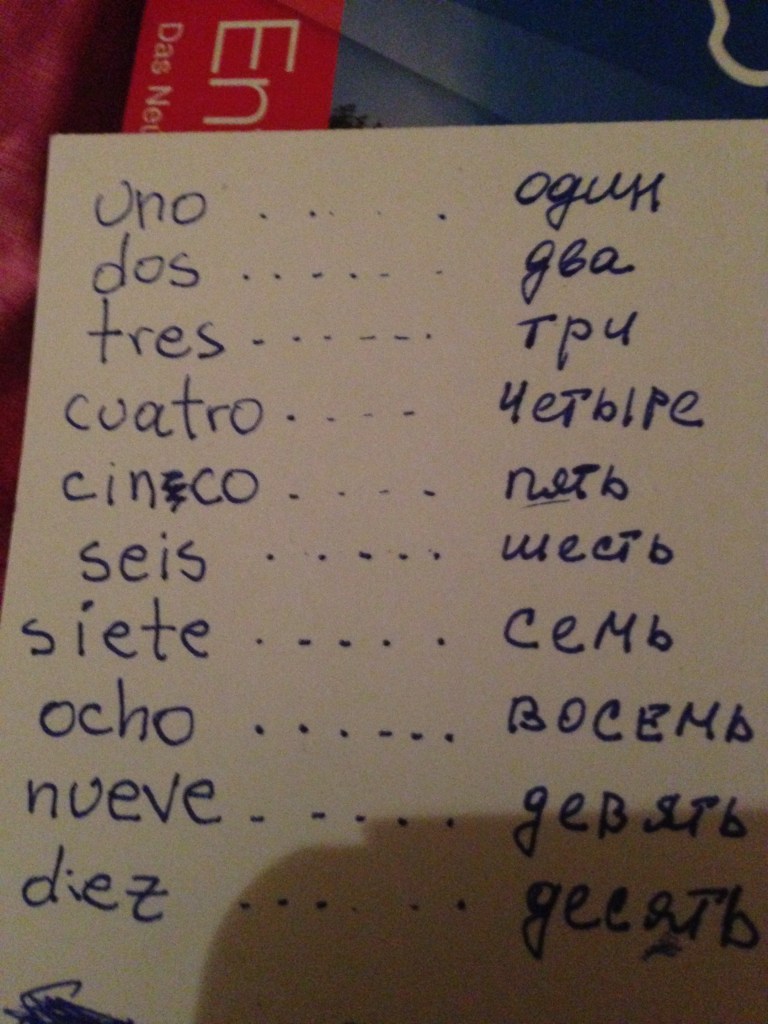 En
Das Neu
uno . . . . . . один
dos . . . . . . два
tres . . . . . . три
cuatro . . . . четыре
cinco . . . . . пять
seis . . . . . . шесть
siete . . . . . семь
ocho . . . . . . восемь
nueve . . . . . девять
diez . . . . . . десять